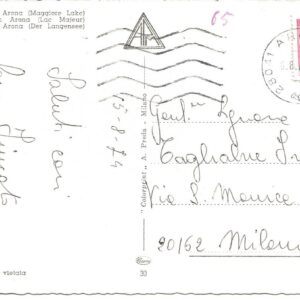 Arona (Maggiore Lake)
Arona (Lac Majeur)
Arona (Der Langensee)
65
28041 A
Saluti cari
15-8-74
"Colorprint" A. Preda - Milano
Gent.
Signora
Tagliabue
Via S. Monica
20162 Milano
vietata
30